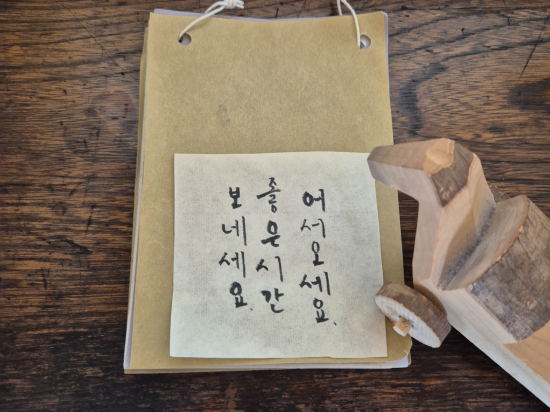 어서오세요.
좋은시간
보네세요.